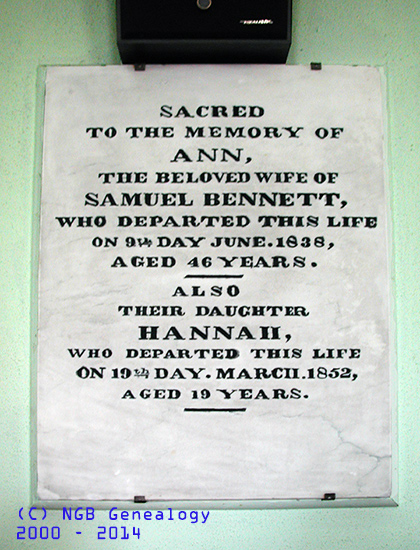 SACRED
TO THE MEMORY OF
ANN,
THE BELOVED WIFE OF
SAMUEL BENNETT,
WHO DEPARTED THIS LIFE
ON 9th DAY JUNE.1838,
AGED 46 YEARS.
ALSO
THEIR DAUGHTER
HANNAH,
WHO DEPARTED THIS LIFE
ON 19th DAY. MARCH.1852,
AGED 19 YEARS.
(C) NGB Genealogy
2000 - 2014